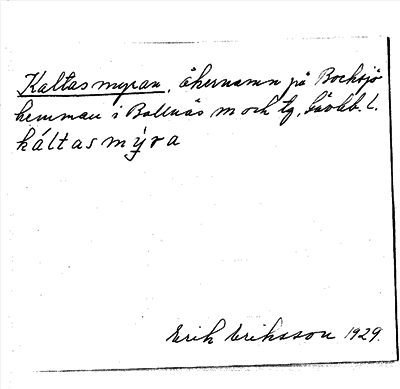 Kaltasmyran, åkernamn på Bocksjö
hemman i Bollnäs sn och tg, Gävleb. l.
káltasmỳra
Erik Eriksson 1929.